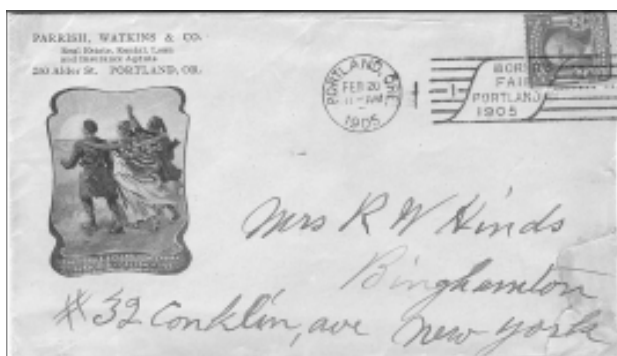 PARRISH, WATKINS & CO.
Real Estate, Rental, Loan
and Insurance Agents
250 Alder St. PORTLAND, OR.
PORTLAND, ORE.
FEB 20
11-AM
1905
1
WORLD'S
FAIR
PORTLAND
1905
Mrs R W Hinds
Binghamton
# 32 Conklin, ave New York